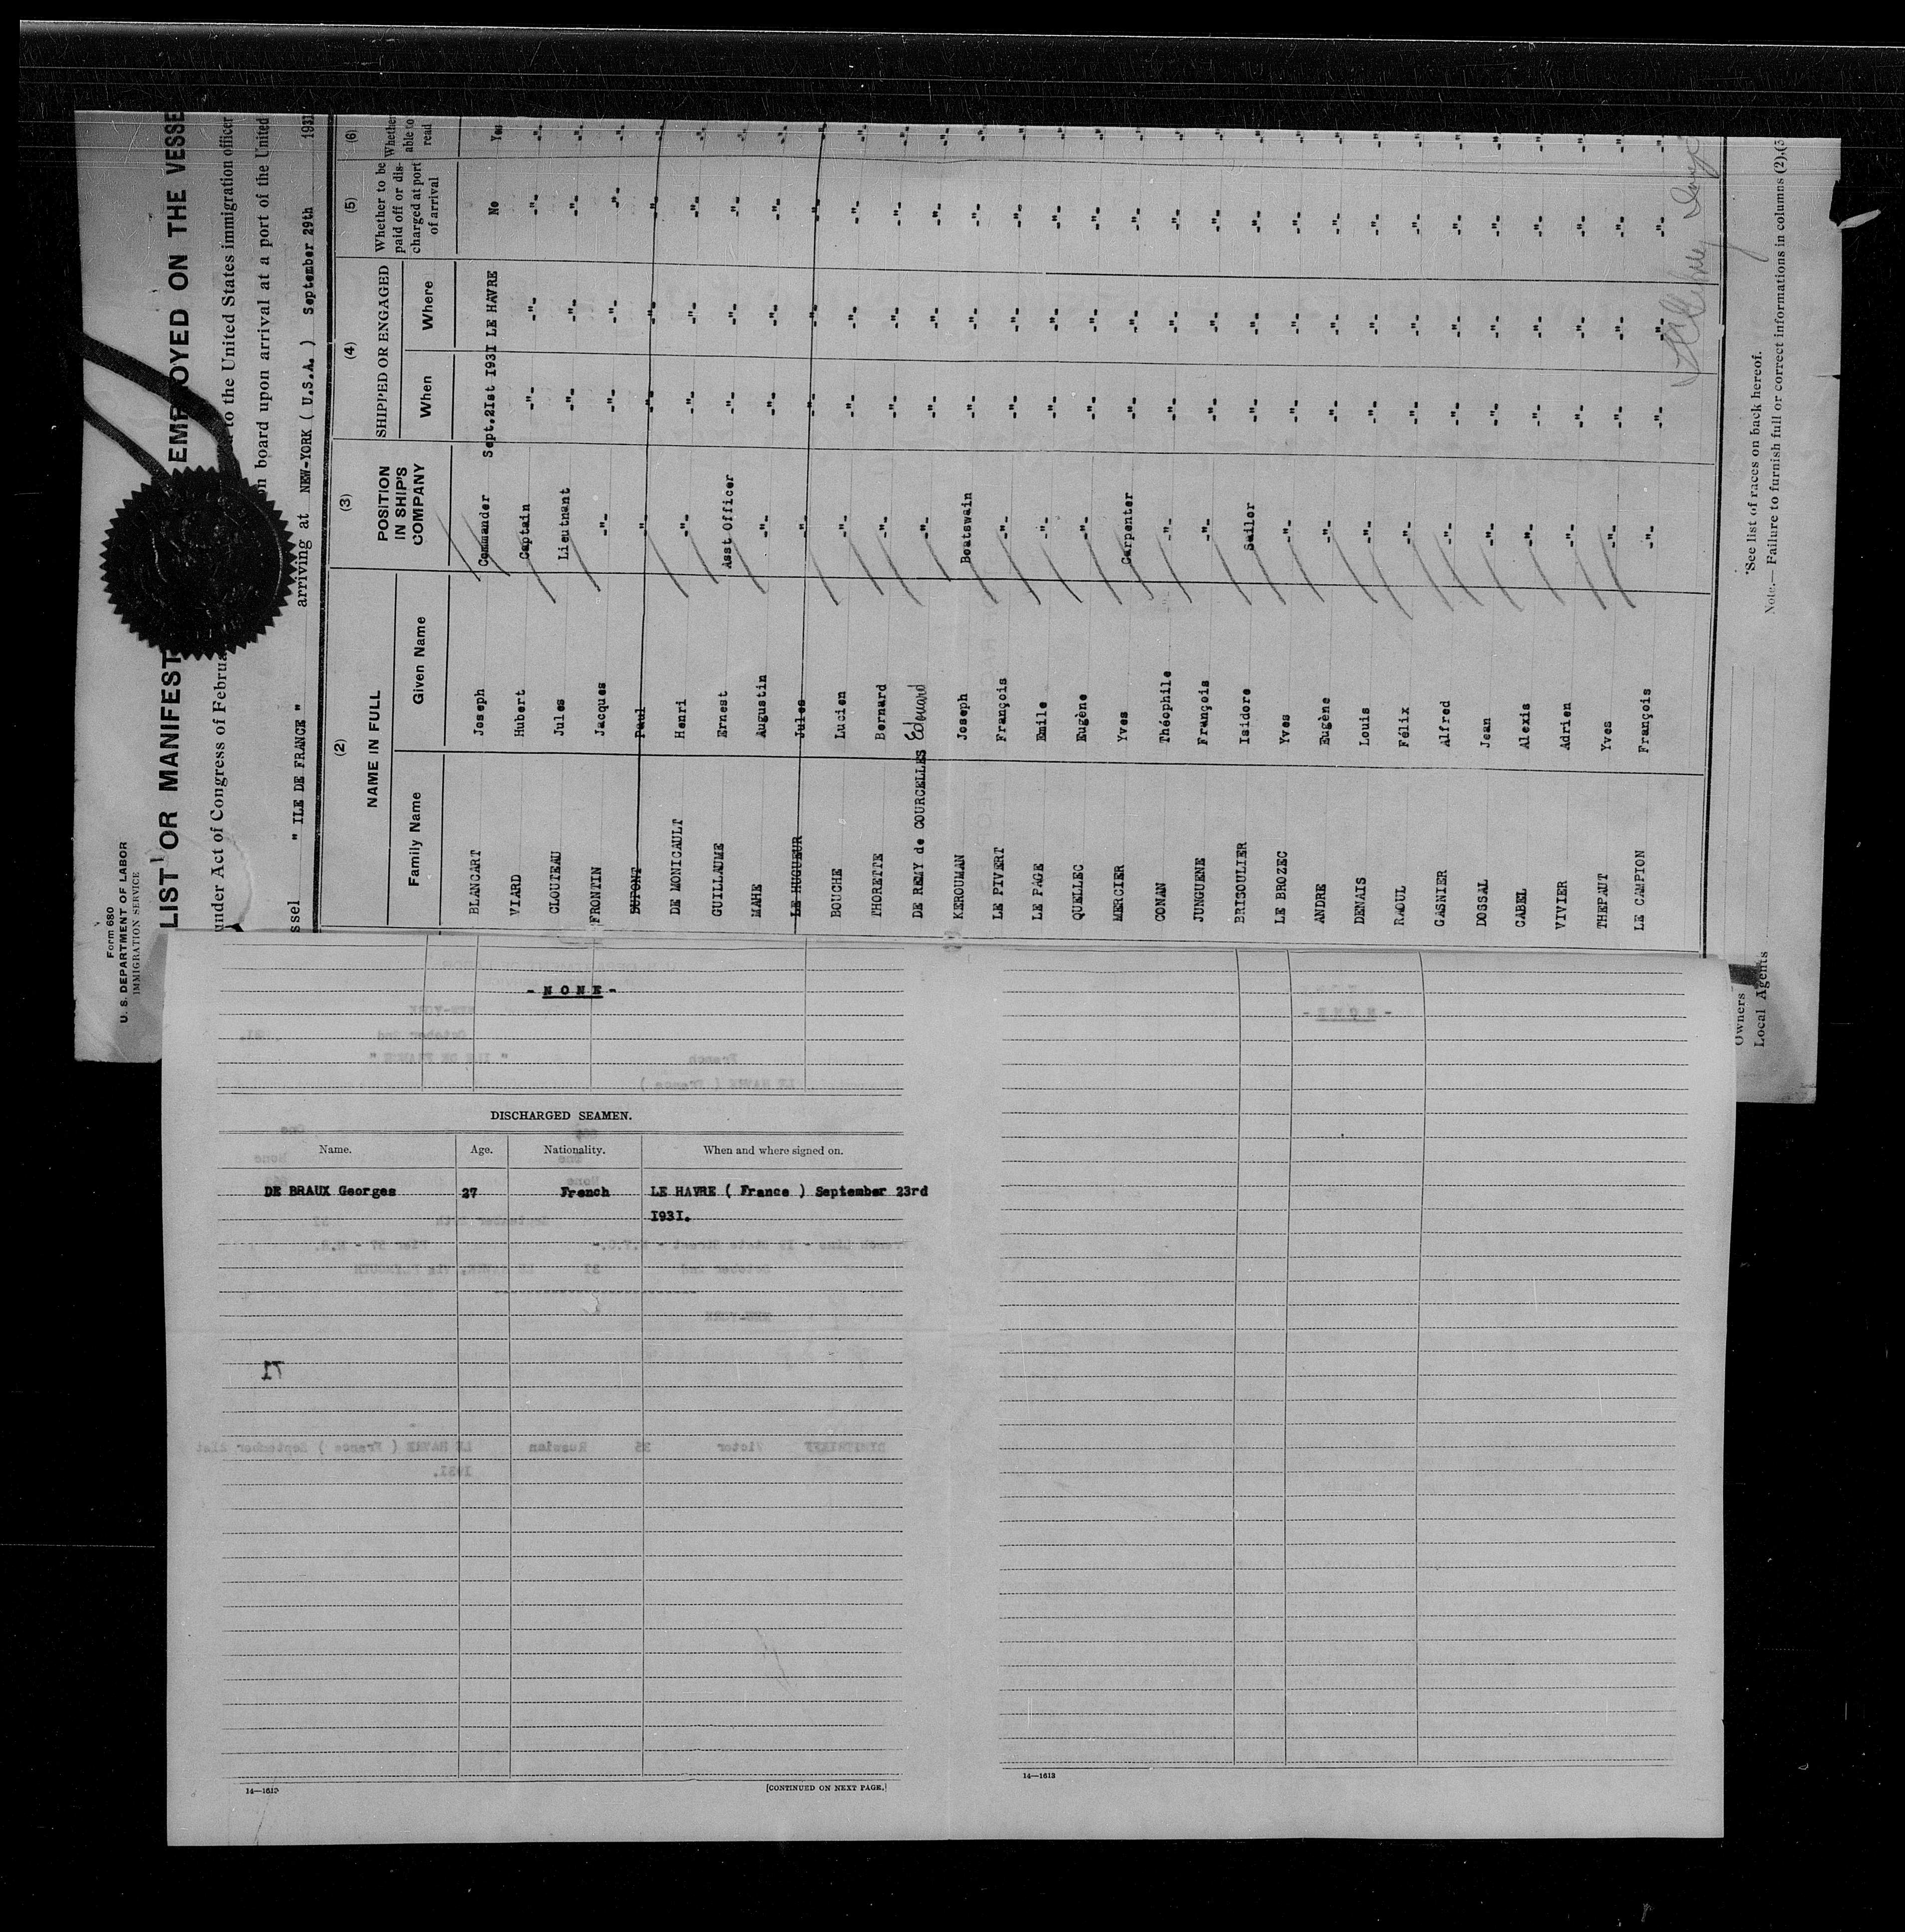 Form 680
U. S. DEPARTMENT OF LABOR
IMMIGRATION SERVICE
LIST OR MANIFEST EMPLOYED ON THE VESSE
under Act of Congress of Februa to the United States immigration officer
on board upon arrival at a port of the United
ssel " ILE DE FRANCE " arriving at NEW-YORK ( U.S.A. ) September 29th 1931
(2) (3) (4) (5) (6)
NAME IN FULL POSITION IN SHIP'S COMPANY SHIPPED OR ENGAGED Whether to be paid off or dis- charged at port of arrival Whether able to read
Family Name Given Name When Where
BLANCART Joseph Commander Sept.2Ist I93I LE HAVRE No Yes
VIARD Hubert Captain -"- -"- -"- -"-
CLOUTEAU Jules Lieutnant -"- -"- -"- -"-
FRONTIN Jacques -"- -"- -"- -"- -"-
DUPONT Paul -"- -"- -"- -"- -"-
DE MONICAULT Henri -"- -"- -"- -"- -"-
GUILLAUME Ernest Asst Officer -"- -"- -"- -"-
MAHE Augustin -"- -"- -"- -"- -"-
LE HUGUEUR Jules -"- -"- -"- -"- -"-
BOUCHE Lucien -"- -"- -"- -"- -"-
THORETTE Bernard -"- -"- -"- -"- -"-
DE REMY de COURCELLES Edouard -"- -"- -"- -"- -"-
KEROUMAN Joseph Boatswain -"- -"- -"- -"-
LE PIVERT François -"- -"- -"- -"- -"-
LE PAGE Emile -"- -"- -"- -"- -"-
QUELLEC Eugène -"- -"- -"- -"- -"-
MERCIER Yves Carpenter -"- -"- -"- -"-
CONAN Théophile -"- -"- -"- -"- -"-
JUNGUENE François -"- -"- -"- -"- -"-
BRISOULIER Isidore Sailor -"- -"- -"- -"-
LE BROZEC Yves -"- -"- -"- -"- -"-
ANDRE Eugène -"- -"- -"- -"- -"-
DENAIS Louis -"- -"- -"- -"- -"-
RAOUL Félix -"- -"- -"- -"- -"-
GASNIER Alfred -"- -"- -"- -"- -"-
DOSSAL Jean -"- -"- -"- -"- -"-
CABEL Alexis -"- -"- -"- -"- -"-
VIVIER Adrien -"- -"- -"- -"- -"-
THEPAUT Yves -"- -"- -"- -"- -"-
LE CAMPION François -"- -"- -"- -"- -"-
Owners
Local Agents
*See list of races on back hereof.
Note.— Failure to furnish full or correct informations in columns (2),(5
- N O N E -
DISCHARGED SEAMEN.
Name. Age. Nationality. When and where signed on.
DE BRAUX Georges 27 French LE HAVRE ( France ) September 23rd
I93I.
14—1613 [CONTINUED ON NEXT PAGE.]
14—1613